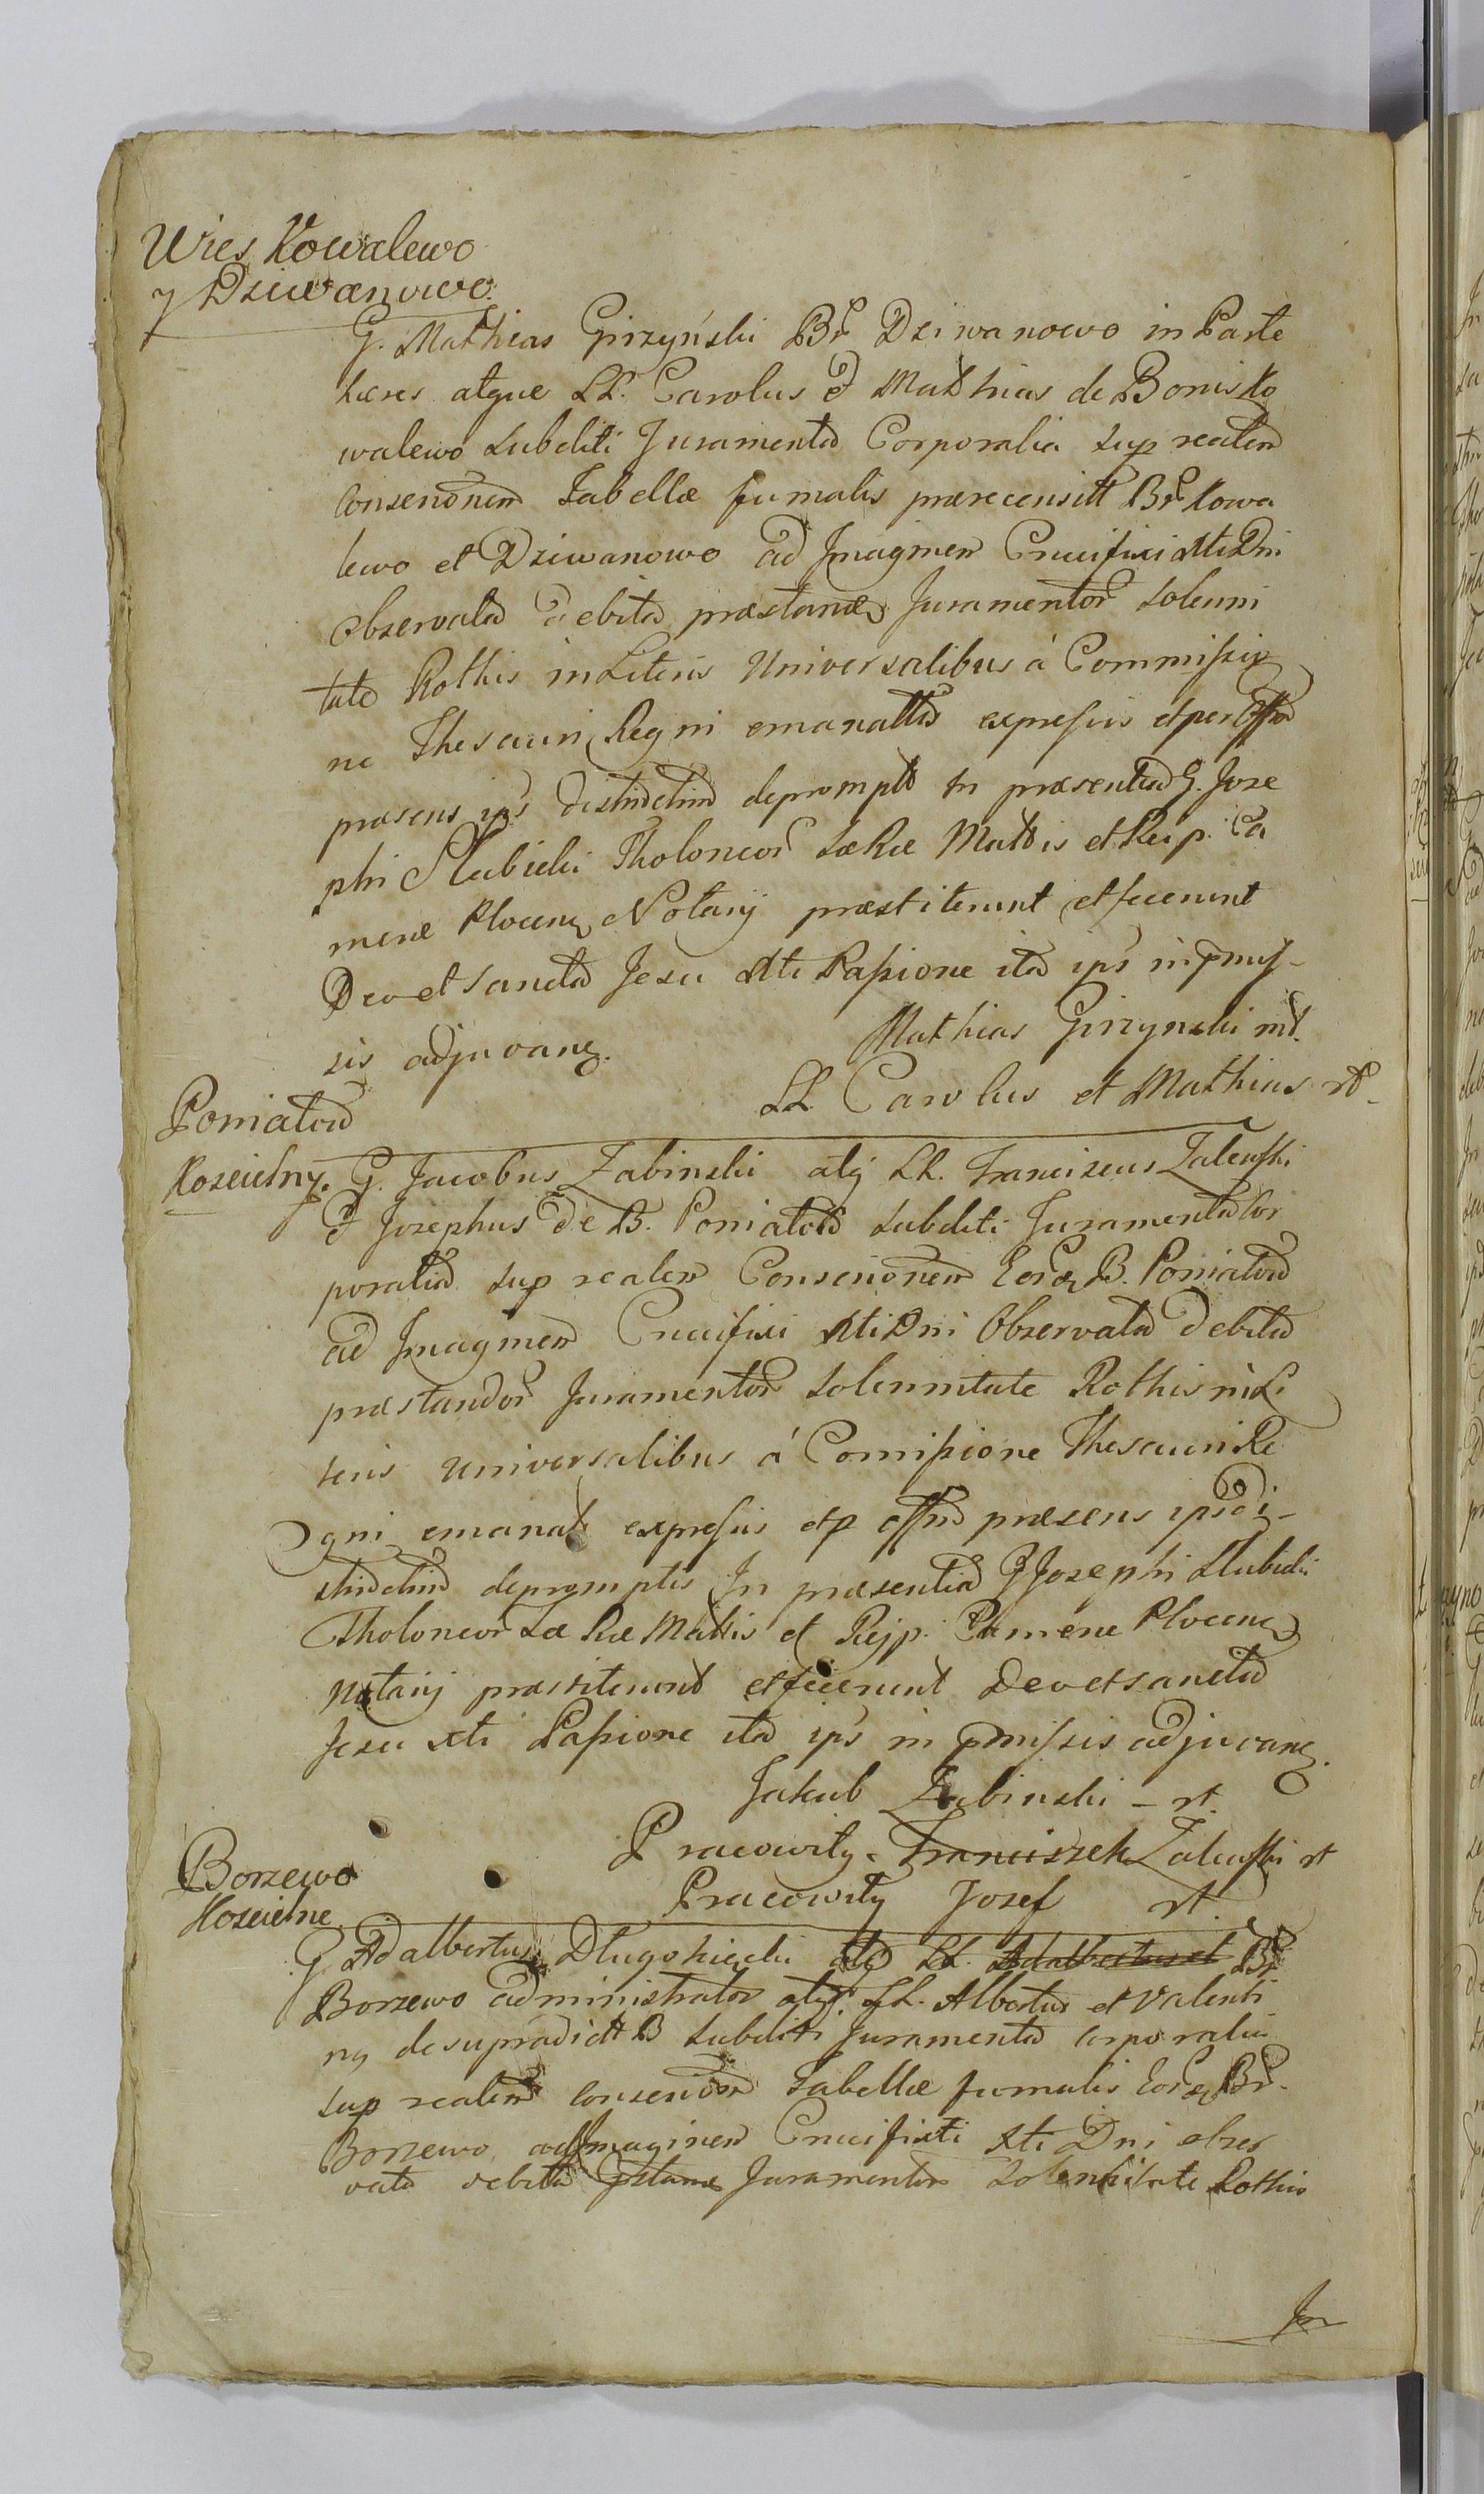 Wies Kowalewo
y Dziwanowo.
G. Mathias Girzyński Br Dziwanowo in Parte
hæres atque LL. Carolus & Mathias de Bonis Ko
walewo Subditi Juramenta Corporalia sup realem
Consenõnem Tabellæ fumalis prærecensitt Br Kowa
lewo et Dziwanowo ad Imaginem Crucifixi Xti Dni
Observata debita præstand Juramentor Solenni
tate Rothis in Literis Universalibus á Commissio
ne Thesauri Regni emanattis expressis et per Offm
præsens ips distinctim deprompt in præsentia G. Jose
phi Slubicki Tholoneor Sæ Ræ Mattis et Reip. Ca
meræ Plocens Notarij præstiterunt et fecerunt
Deo et Sancta Jesu Xti Passione ita ips in pmis-
sis adjuvan.
Mathias Girzynski
LL. Carolus et Mathias rt
Poniatow
Koscielny.
G. Jacobus Zabinski atq LL. Franciscus Zalewski
& Josephus de B. Poniatow Subditi Juramenta Cor
poralia sup realem Consenõnem B. Poniatow
ad Imaginem Crucifixi Xti Dni Observata debita
præstandor Juramentor Solennitate Rothis in Li
teris Universalibus á Comissione Thesauri Re
gni emanatt expressis et p offm præsens ips di-
stinctim depromptis In præsentia G Josephi Slubicki
Tholoneor Sæ Ræ Mattis et Rejp. Cameræ Plocens
Notarij præstiterunt et fecerunt Deo et Sancta
Jesu Xti Passione ita ips in pmissis adjuvan.
Jakub Zabinski - rt.
Pracowity Franciszek Zalewski rt
Pracowity Josef rt
Borzewo
Koscielne
G. Adalbertus Długokięcki atq LL. Adalbertus et Br
Borzewo administrator atq LL. Albertus et Valenti
ny de supradict B Subditi Juramenta Corporalia
sup realem Consenõnem Tabellæ fumalis Br
Borzewo ad Imaginem Crucifixi Xti Dni obser
vata debita pstand Juramentor Solennitate Rothis
In